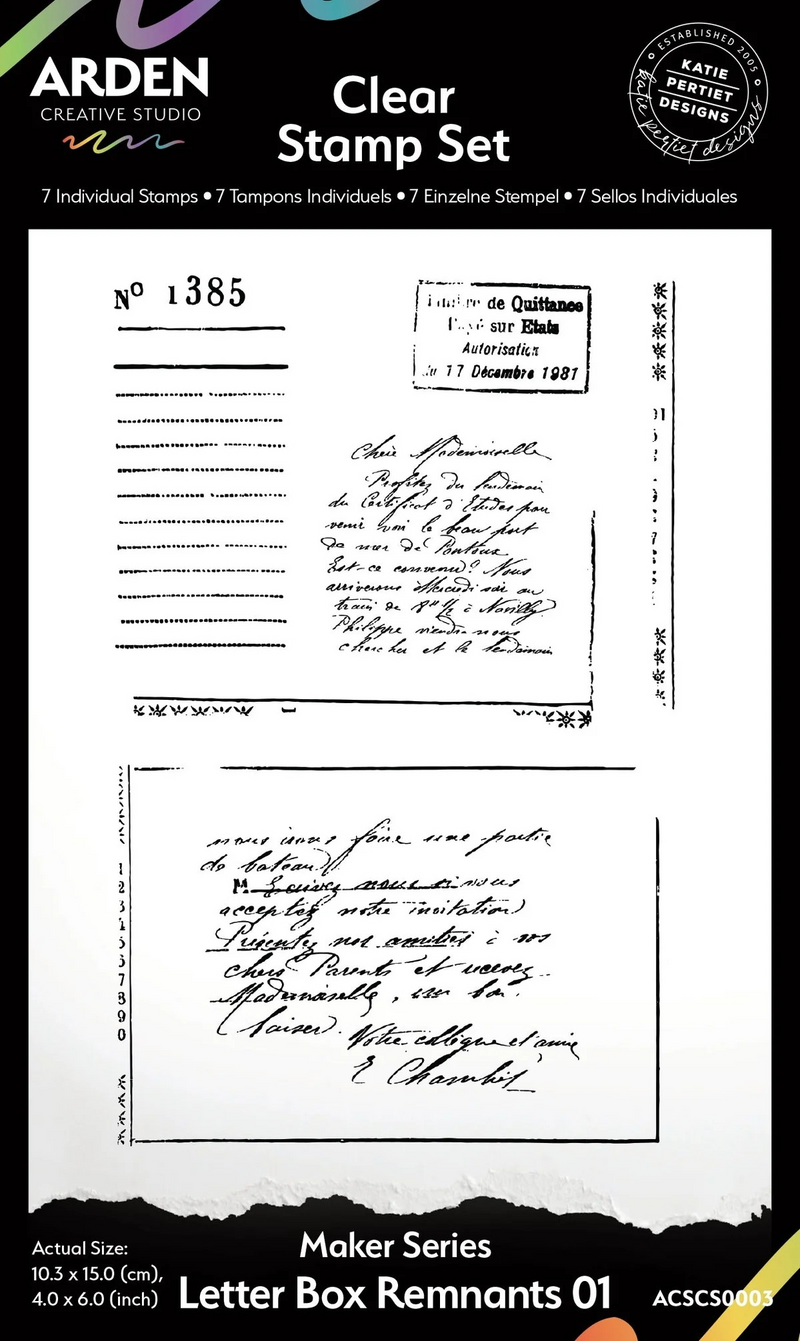 ARDEN
CREATIVE STUDIO
Clear
Stamp Set
ESTABLISHED 2005
KATIE
PERTIET
DESIGNS
katie pertiet designs
7 Individual Stamps • 7 Tampons Individuels • 7 Einzelne Stempel • 7 Sellos Individuales
Nº 1385
de Quittance
sur Etats
Autorisation
du 17 Décembre 1981
Chère Mademoiselle
Profitez du lendemain
du Certificat d'Etudes pour
venir voir le beau port
de mer de Pontoux
Est-ce convenu? Nous
arriverons Mercredi soir au
train de 8H 1/2 à Navilly
Philippe viendra nous
chercher et le lendemain
nous irons faire une partie
de bateau
M. Ecrivez nous si vous
acceptez notre invitation
Présentez nos amitiés à vos
chers Parents et recevez
Mademoiselle, un bon
baiser.
Votre collègue et amie
E Chambet
1
2
3
4
5
6
7
8
9
0
Actual Size:
10.3 x 15.0 (cm),
4.0 x 6.0 (inch)
Maker Series
Letter Box Remnants 01
ACSCS0003